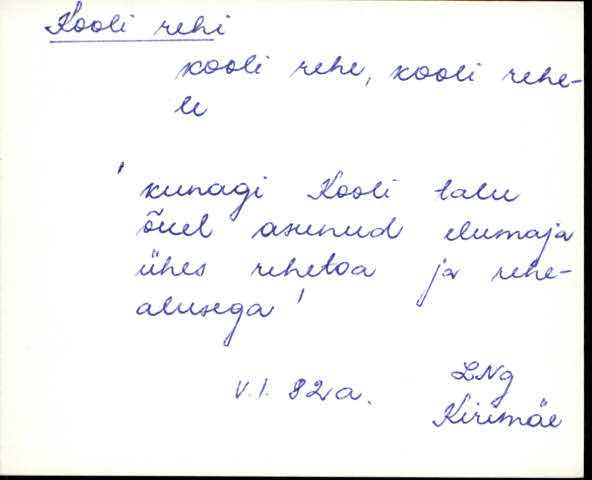 Kooli rehi
kooli rehe, kooli rehe-
le
' kunagi Kooli talu
õuel asunud elumaja
ühes rehetoa ja rehe-
alusega '
V.I. 82 a. LNg
Kirimäe